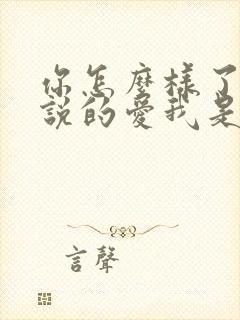 你怎麼樣了
說的愛我是
言聲